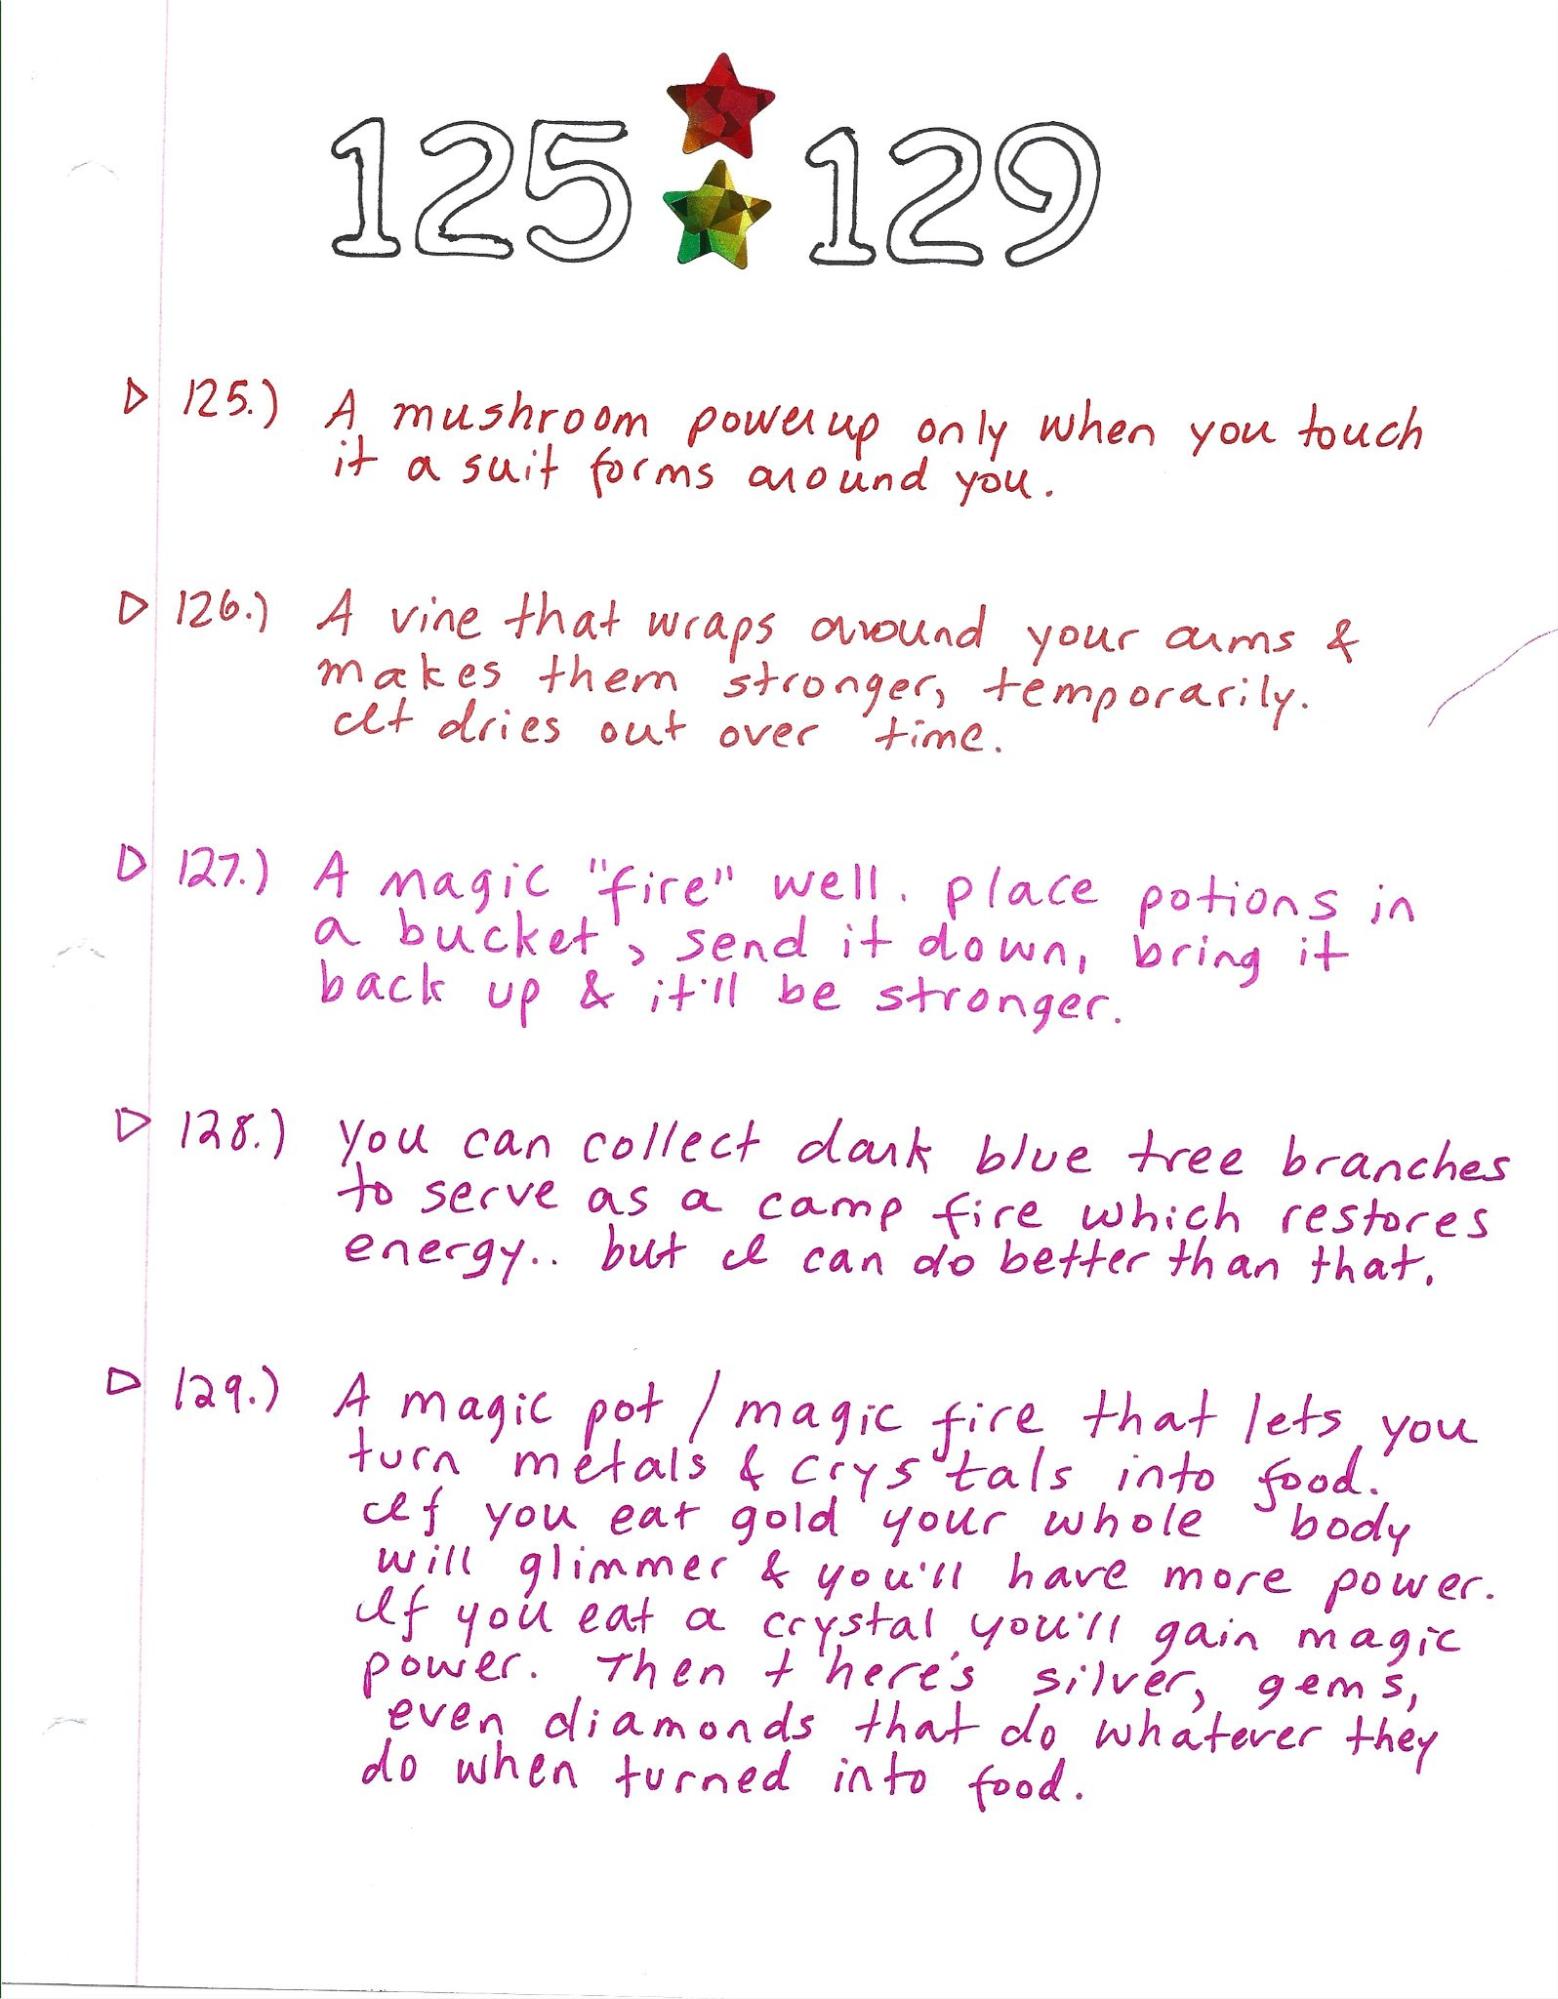 125 129
125.) A mushroom powerup only when you touch
it a suit forms around you.
126.) A vine that wraps around your arms &
makes them stronger, temporarily.
It dries out over time.
127.) A magic "fire" well. place potions in
a bucket, send it down, bring it
back up & it'll be stronger.
128.) you can collect dark blue tree branches
to serve as a camp fire which restores
energy.. but I can do better than that.
129.) A magic pot / magic fire that lets you
turn metals & crystals into food.
If you eat gold your whole body
will glimmer & you'll have more power.
If you eat a crystal you'll gain magic
power. Then there's silver, gems,
even diamonds that do whatever they
do when turned into food.